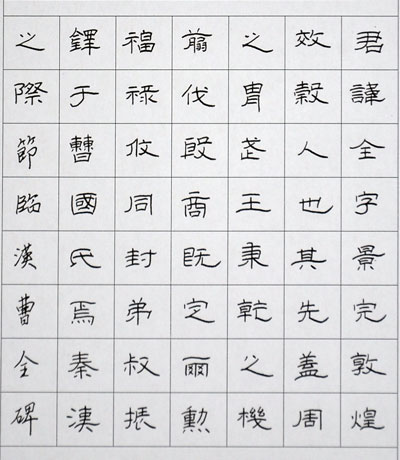 君諱全字景完敦煌
效穀人也其先蓋周
之胄武王秉乾之機
翦伐殷商既定爾勳
福祿攸同封弟叔振
鐸于曹國氏焉秦漢
之際節臨漢曹全碑